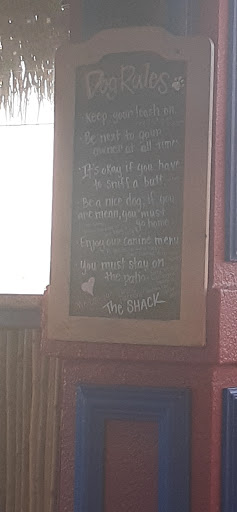 Dog Rules
Keep your leash on
· Be next to your
owner at all times
· It's okay if you have
to sniff a butt
· Be a nice dog, if you
are mean, you must
go home
· Enjoy our canine menu
· You must stay on
the patio
The SHACK